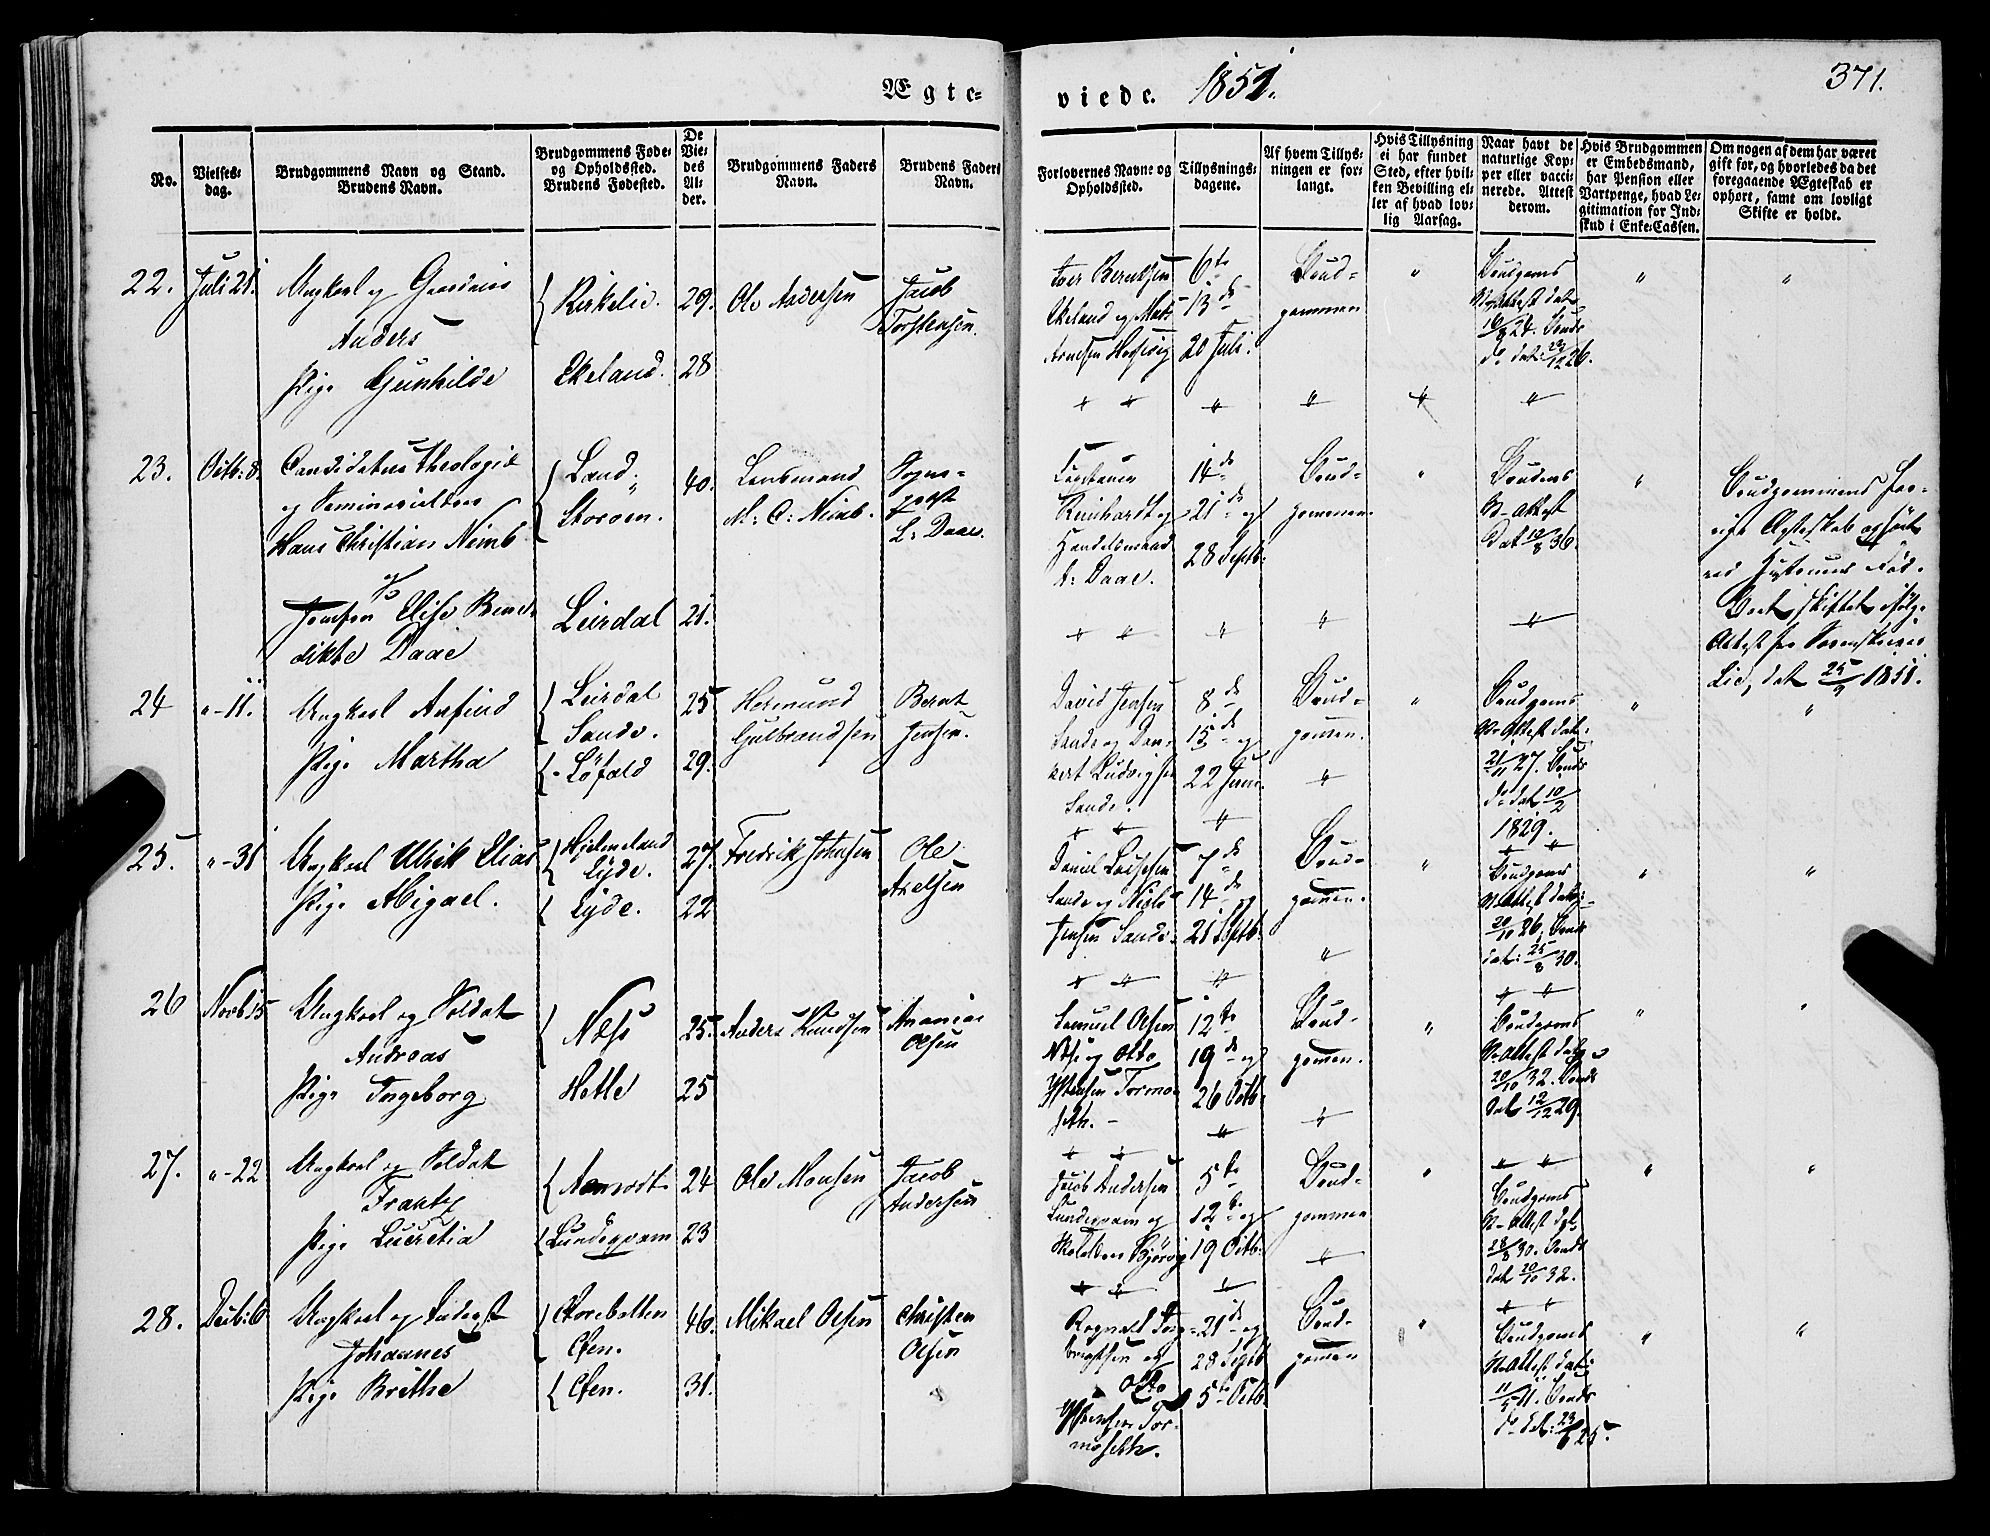 Ægte-
viede. 1851.
371.
No.
Vielses-
dag.
Brudgommens Navn og Stand.
Brudens Navn.
Brudgommens Føde-
og Opholdssted.
Brudens Fødested.
De
Vie-
des
Al-
der.
Brudgommens Faders
Navn.
Brudens Faders
Navn.
Forlovernes Navne og
Opholdssted.
Tillysnings-
dagene.
Af hvem Tillys-
ningen er for-
langt.
Hvis Tillysning
ei har fundet
Sted, efter hvil-
ken Bevilling el-
ler af hvad lov-
lig Aarsag.
Naar havt de
naturlige Kop-
per eller vacci-
nerede. Attest
derom.
Hvis Brudgommen
er Embedsmand,
har Pension eller
Vartpenge, hvad Le-
gitimation for Ind-
skud i Enke-Cassen.
Om nogen af dem har været
gift før, og hvorledes da det
foregaaende Ægteskab er
ophørt, samt om lovligt
Skifte er holdt.
22. Juli 21. Ungkarl og
Anders
Pige Gunhilde
Kirkelie.
Ekeland.
29.
28
Ole Andersen
Jacob
Torstensen.
Iver Berntsen
Ekeland og
6te
13de
20 Juli.
Brud-
gommen
Brudgoms
V-Attest dat
23. Octb: 8. Candidatus theologiæ
og Seminarielærer
Hans Christian Nimb
Jomfru Elise Bene-
dikte Daae
Land
Storøen.
Leirdal
40.
21.
Lensmand
M: C: Nimb.
Sogne-
præst
L: Daae.
Reinhardt og
Handelsmand
Daae.
14de
21de og
28 Septb:
Brud-
gommen.
Brudens
V-Attest
Dat 10/8 36.
Brudgommens for-
rige Ægteskab ophørt
ved Hustruens Død.
Attest fra Sorenskriver
Lie, dat 25/9 1851.
24 "-11. Ungkarl Anfind
Pige Martha
Leirdal
Sande.
Løfald
25
29.
Hermund
Gulbrandsen
Bernt
Jensen.
David Jensen
Sande og Dan-
kert Ludvigsen
Sande.
8de
15de og
22 Juni.
Brud-
gomen.
Brudgoms
V-Attest dat:
21/11 27. Bruds
do dat 10/2
1829.
25. "-31 Ungkarl Ulrik Elias
Pige Abigael.
Hjelmeland
Lyde.
Lyde.
27.
22
Fredrik Johnsen
Ole
Axelsen
Daniel
Sande og Niels
Jensen Sande
7de
14de og
21 Septb:
Brud-
gomen.
Brudgoms
V-Attest dat:
20/10 26, Bruds
dat: 25/8 30.
26 Novb 15 Ungkarl og Soldat
Andreas
Pige Ingeborg
Næss
Hetle
25.
25
Anders Knudsen
Ananias
Olsen
Samuel Olsen
Næss og Otto
Tormo-
seth.
12te
19de og
26 Octb:
Brud-
gomen.
Brudgoms
V-Attest dat
20/10 32. Bruds
Dat 12/12 29.
27. "-22 Ungkarl og Soldat
Frantz
Pige Lucretia
Lundeqvam
24
23
Ole Monsen
Jacob
Andersen
Jacob Andersen
Lundeqvam og
5te
12te og
19 Octb:
Brud-
gommen
Brudgoms
V-Attest dat
28/8 30. Bruds
dat 20/10 32.
28. Decb: 6 Ungkarl og Inderst
Johannes
Pige Brithe
Storebotten
Øen.
Øen.
46.
31.
Mikael Olsen
Christen
Olsen
Rognald
og
Otto
Tor-
moseth.
21de og
28 Septb
5te Octb:
Brud-
gomen
Brudgoms
V-Attest dat: